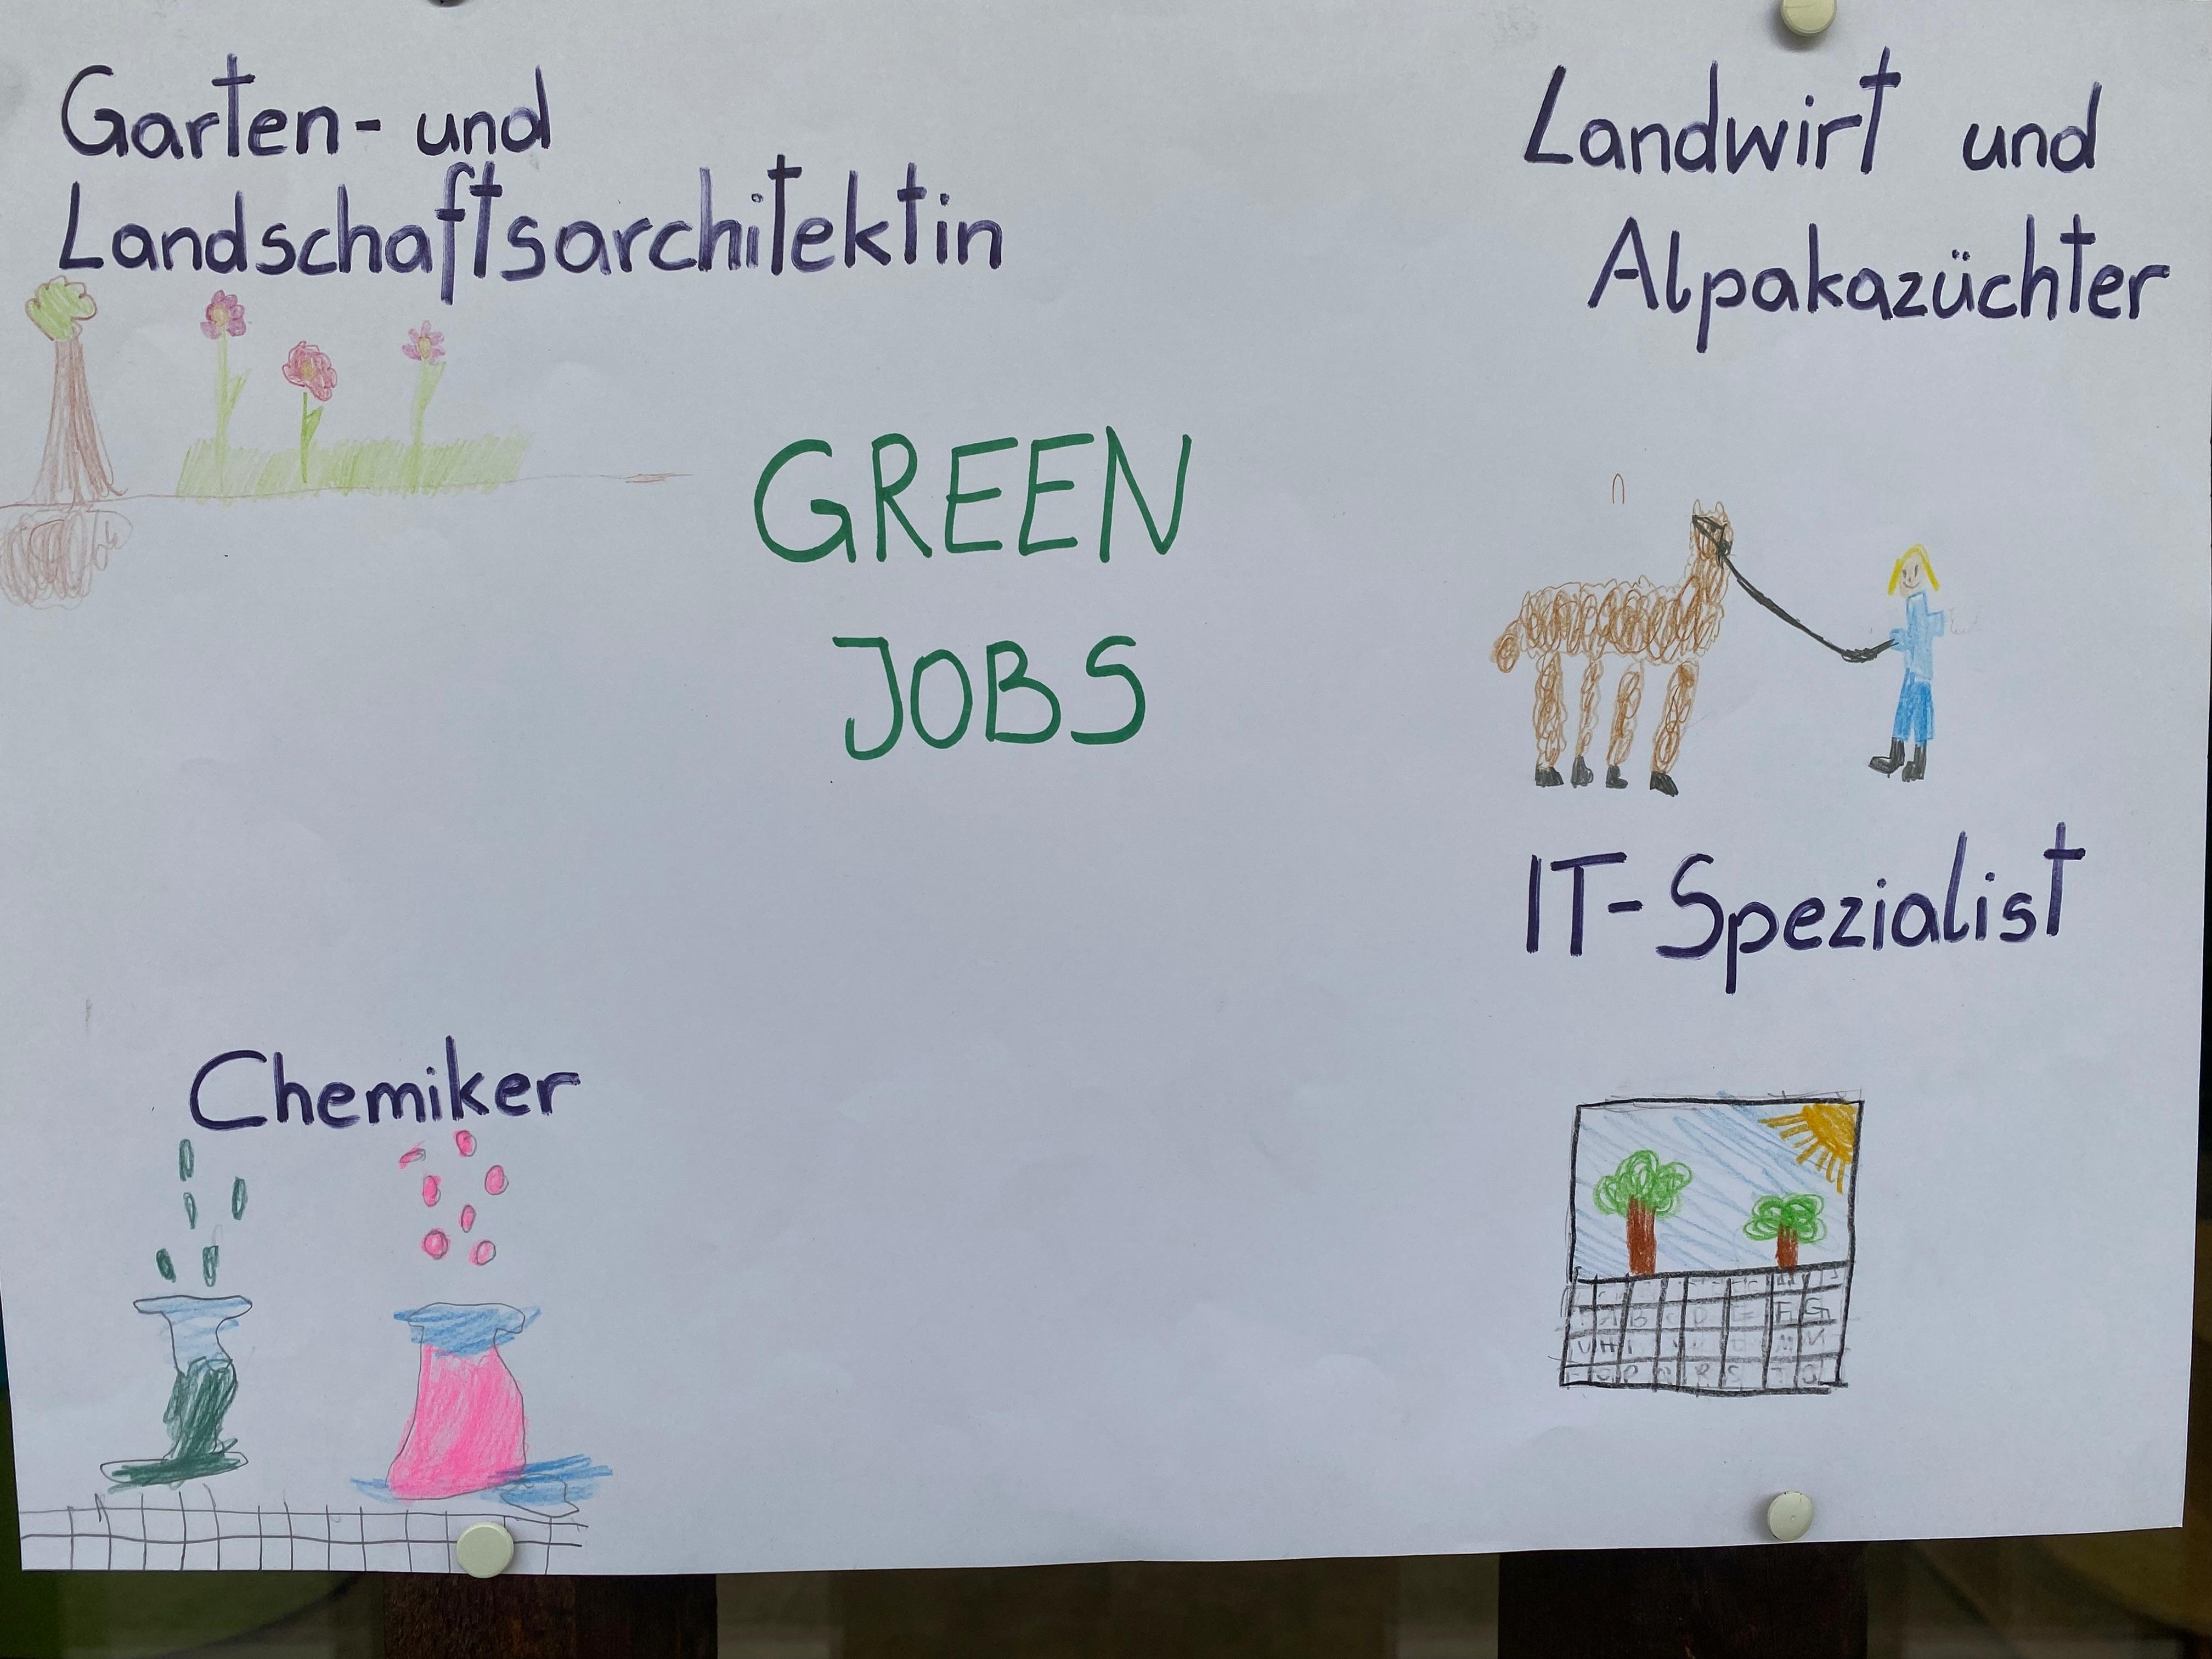 Garten- und
Landschaftsarchitektin
Landwirt und
Alpakazüchter
GREEN
JOBS
IT-Spezialist
Chemiker